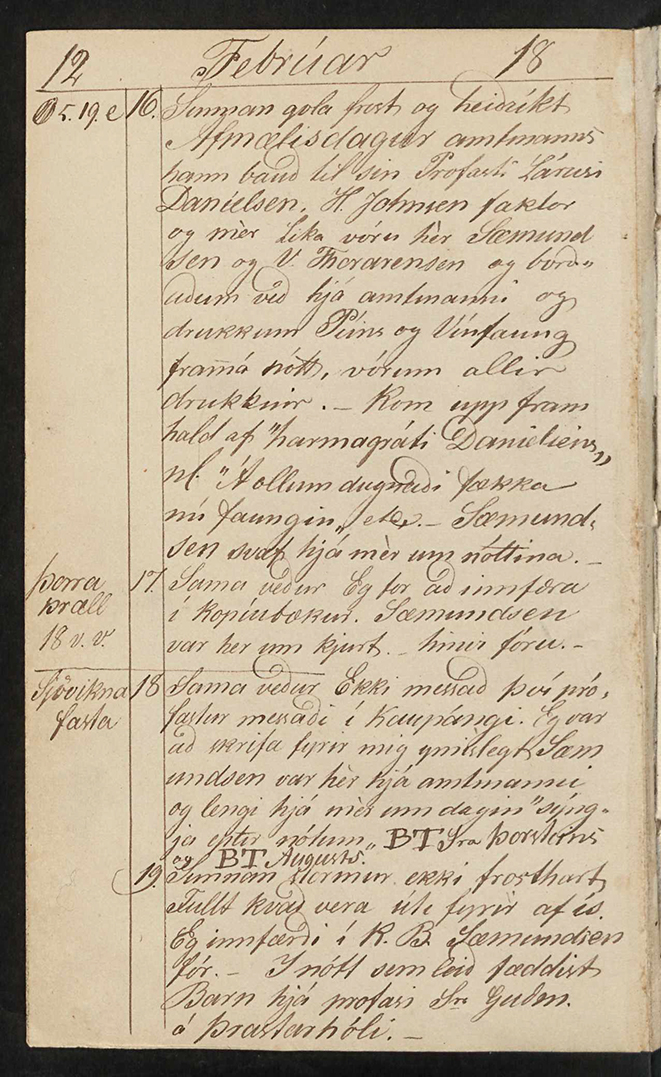 12 Februar 18
5. 19. e 16. Sunnan gola frost og heiðríkt
Afmælisdagur amtmanns
hann bauð til sín Profasti Lárusi
Danielsen. H Johnsen faktor
og mèr Líka vóru hèr Sæmund
sen og V. Thorarensen og borð„
uðum við hjá amtmanni og
drukkum Púns og Vínfaung
framá nótt, vórum allir
drukknir. – Kom upp fram
hald af "harmagráti Danielsens„
nl. "Á ollum dugnaði fækka
nú faungin„ etc. – Sæmund„
sen svaf hjá mèr um nóttina. –
Þorra 17. Sama veður Eg fór að innfæra
þræll í Kopíubækur. Sæmundsen
18 v. v. var her um kjurt. – hinir fóru. –
Sjövikna 18 Sama veður Ekki messað því pró„
fasta fastur messaði í Kaupángi. Eg var
að skrifa fyrir mig ymislegt Sæm
undsen var hèr hjá amtmanni
og lengi hjá mèr um dagin "sýng„
ja eptir nótum„ BT Sra Þorsteins
og BT Augusts.
19. Sunnan stormur ekki frosthart
Fullt kvað vera úti fyrir af ís.
Eg innfærði í K. B. Sæmundsen
fór. – I nótt sem leið fæddist
Barn hjá profasi Sr. Guðm.
á Þrastarhóli. –